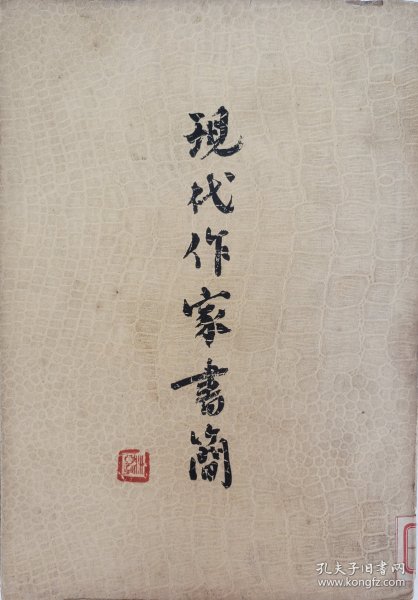 現代作家書簡
孔夫子旧书网
www.kongfz.com